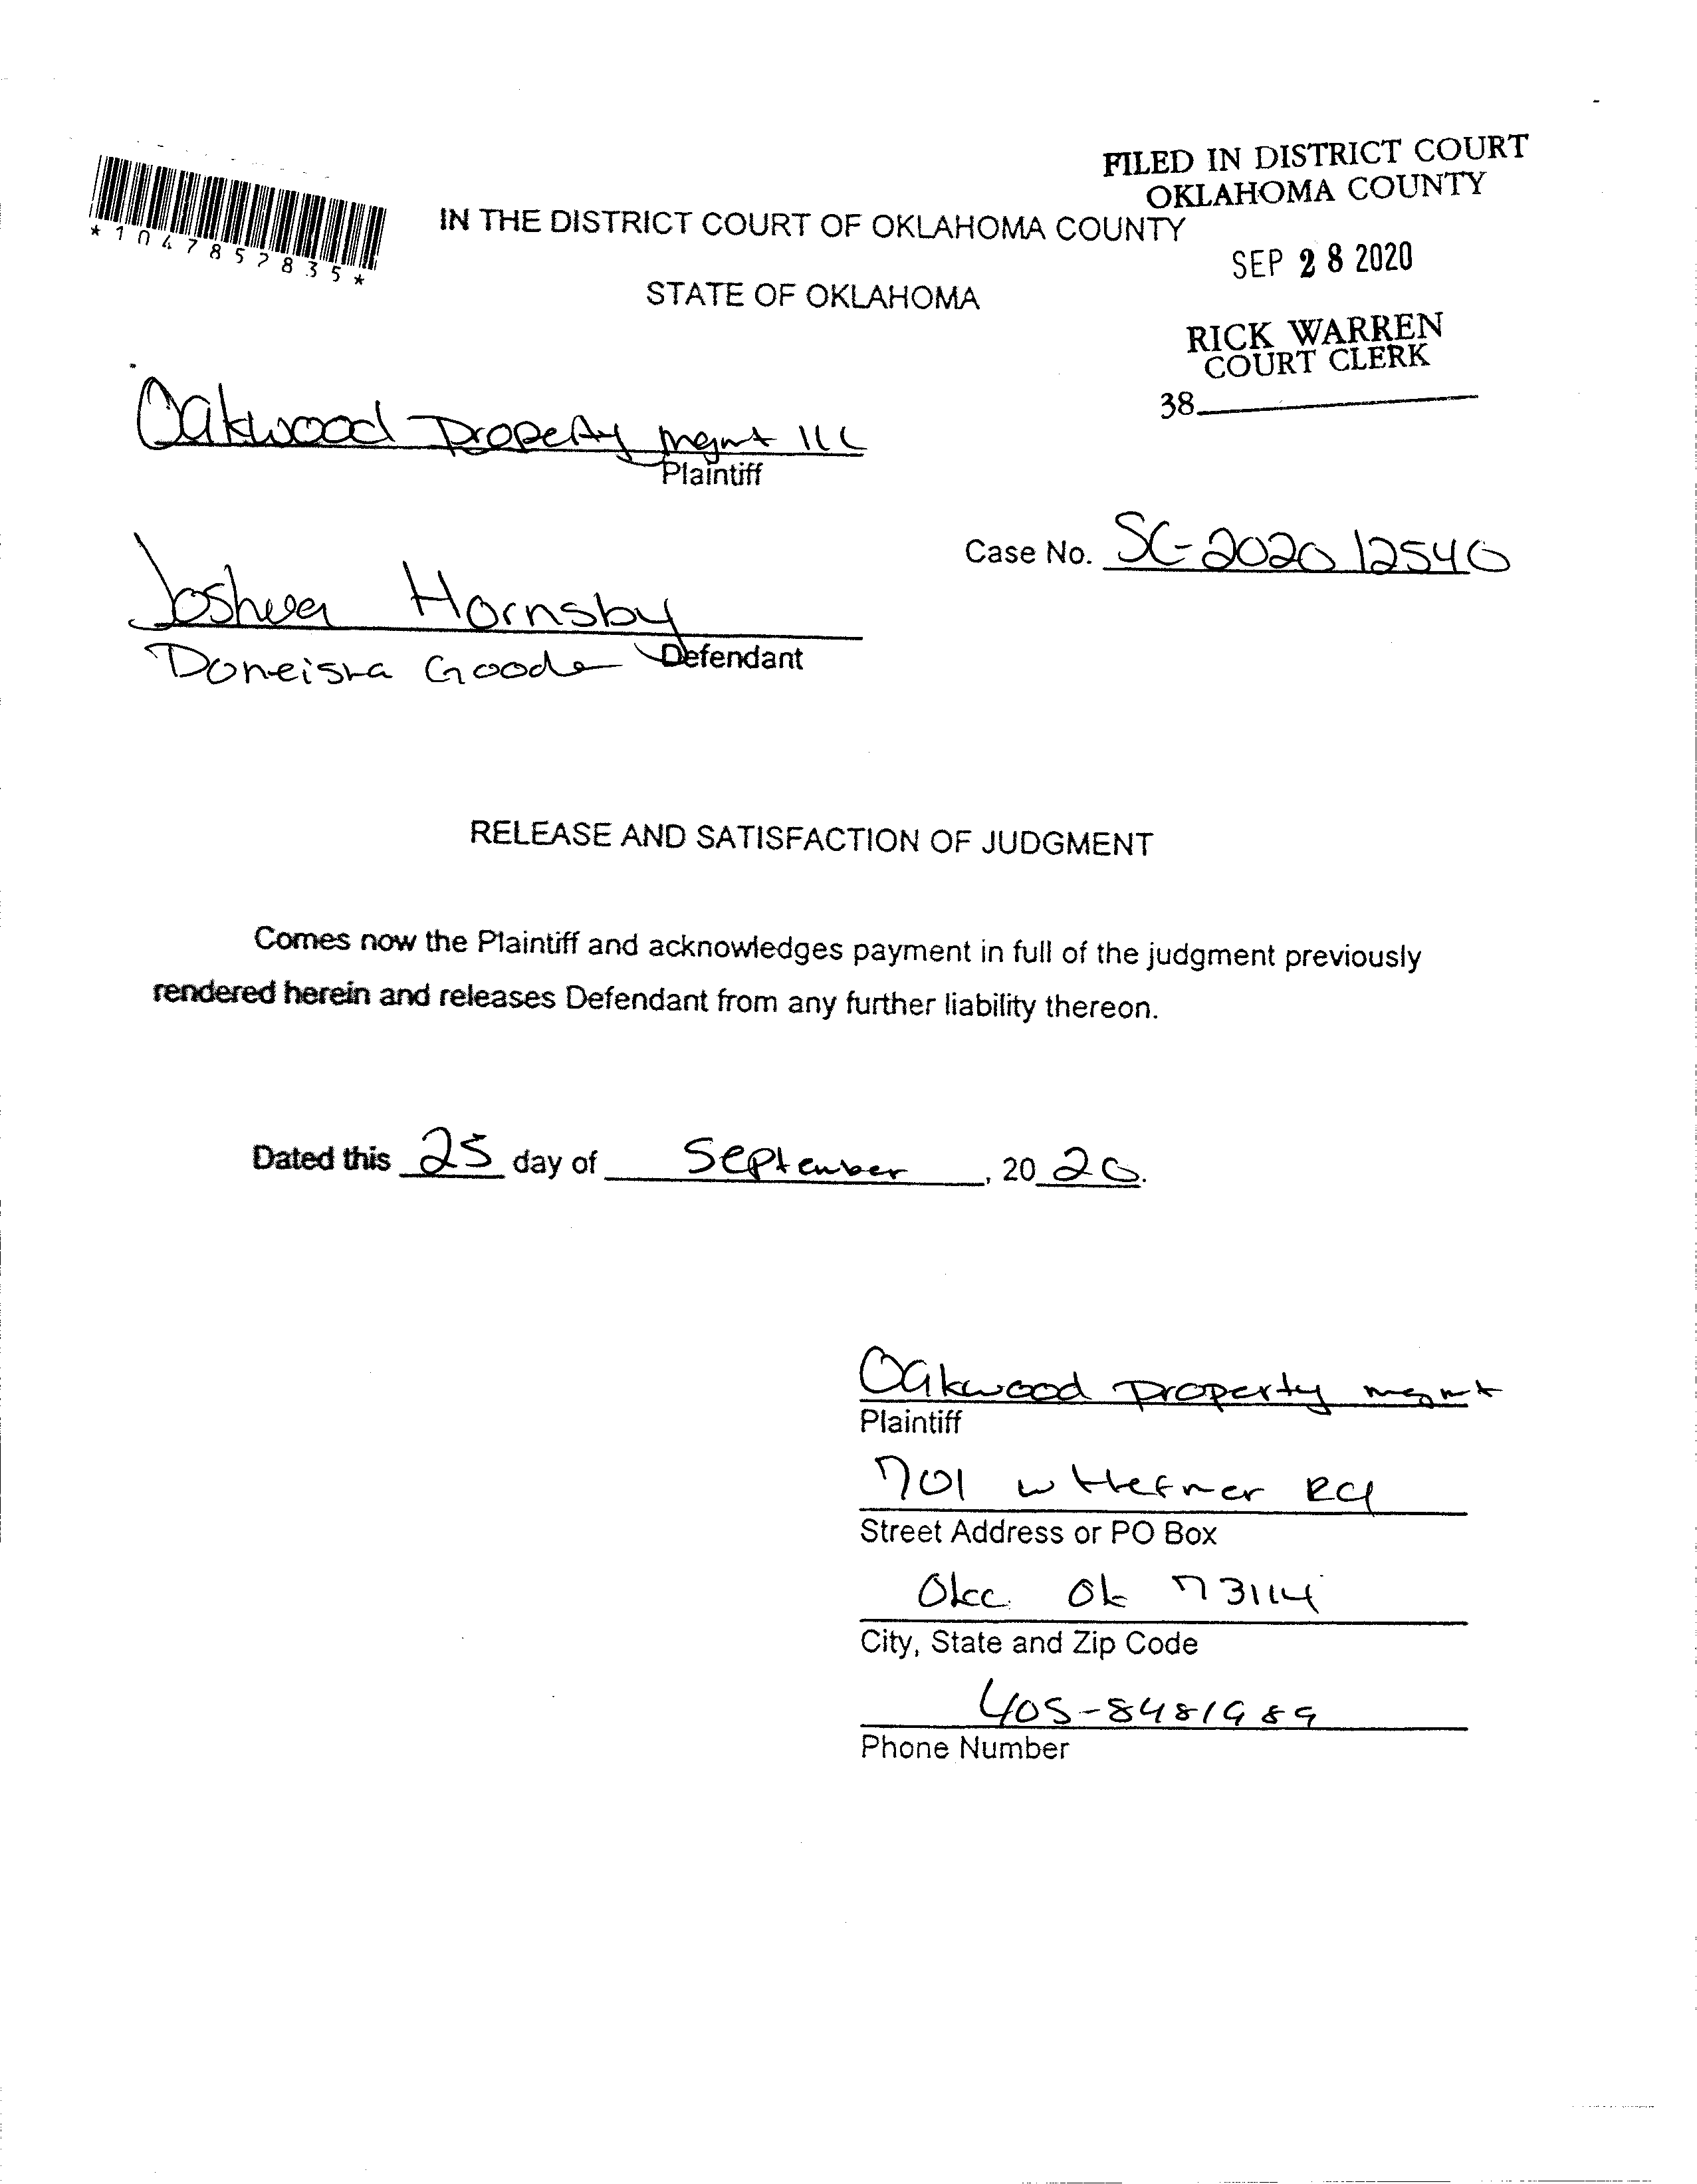 FILED IN DISTRICT COURT
OKLAHOMA COUNTY
*1047857835*
IN THE DISTRICT COURT OF OKLAHOMA COUNTY
SEP 28 2020
STATE OF OKLAHOMA
RICK WARREN
COURT CLERK
38
Oakwood Property mgmt llc
Plaintiff
Case No. SC-2020 12540
Joshua Hornsby
Doneisha Goode Defendant
RELEASE AND SATISFACTION OF JUDGMENT
Comes now the Plaintiff and acknowledges payment in full of the judgment previously
rendered herein and releases Defendant from any further liability thereon.
Dated this 25 day of September, 20 20.
Oakwood property mgmt
Plaintiff
701 w Hefner Rd
Street Address or PO Box
Okc Ok 73114
City, State and Zip Code
405-8481989
Phone Number